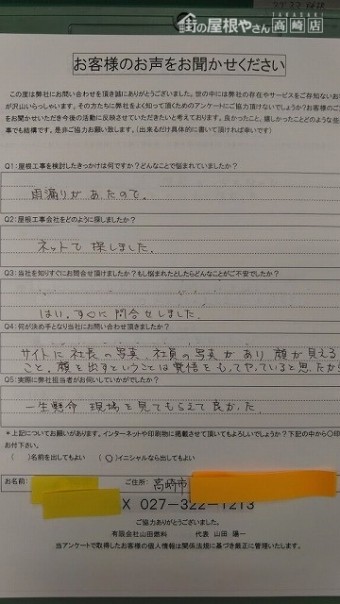 街の屋根やさん
高崎店
お客様のお声をお聞かせください
この度は弊社にお問い合わせを頂き誠にありがとうございました。世の中には弊社の存在やサービスをご存知ないお
が沢山いらっしゃいます。その方たちに弊社をよく知って頂くためのアンケートにご協力頂けないでしょうか?お客様のご
をお聞かせいただき今後の活動に反映させていただきたいと考えております。良かったこと、嬉しかったことどのような些
事でも結構です。是非ご協力お願い致します。(出来るだけ具体的に書いて頂ければ幸いです)
Q1:屋根工事を検討したきっかけは何ですか?どんなことで悩まれていましたか?
雨漏りがあたので。
Q2:屋根工事会社をどのように探しましたか?
ネットで探しました。
Q3:当社を知りすぐにお問合せ頂けましたか?もし悩まれたとしたらどんなことがご不安でしたか?
はい、すぐに問合せしました。
Q4:何が決め手となり当社にお問い合わせ頂きましたか?
サイトに社長の写真、社員の写真があり顔が見える
こと。顔を出すということは責任をもってやっていると思たから
Q5:実際に弊社担当者がお伺いしていかがでしたか?
一生懸命 現場を見てもらえて良かた。
*上記についてお願いがあります。インターネットや印刷物に掲載させて頂いてもよろしいでしょうか?下記の中から○印
お付下さい。
( )名前を出してもよい (○)イニシャルなら出してもよい
お名前 ご住所: 高崎市
X 027-322-1213
ご協力ありがとうございました。
有限会社山田燃料 代表 山田 陽一
当アンケートで取得したお客様の個人情報は関係法規に基づき厳正に管理いたします。